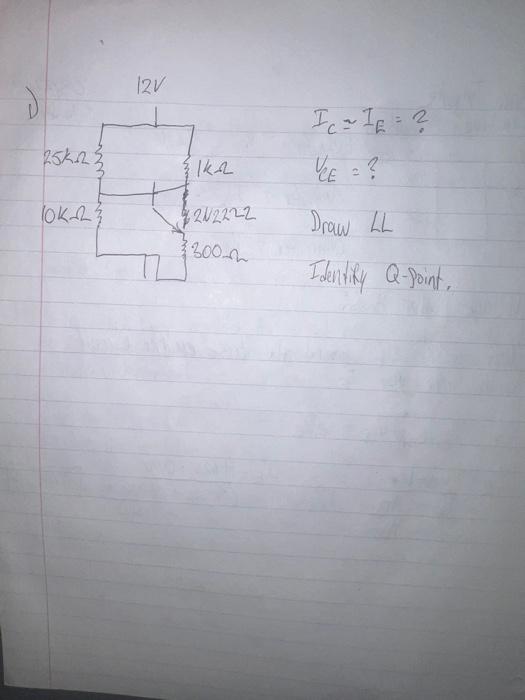 1)
12V
25kΩ
1kΩ
10kΩ
2N2222
300Ω
I_C ≈ I_E = ?
V_CE = ?
Draw LL
Identify Q-point.